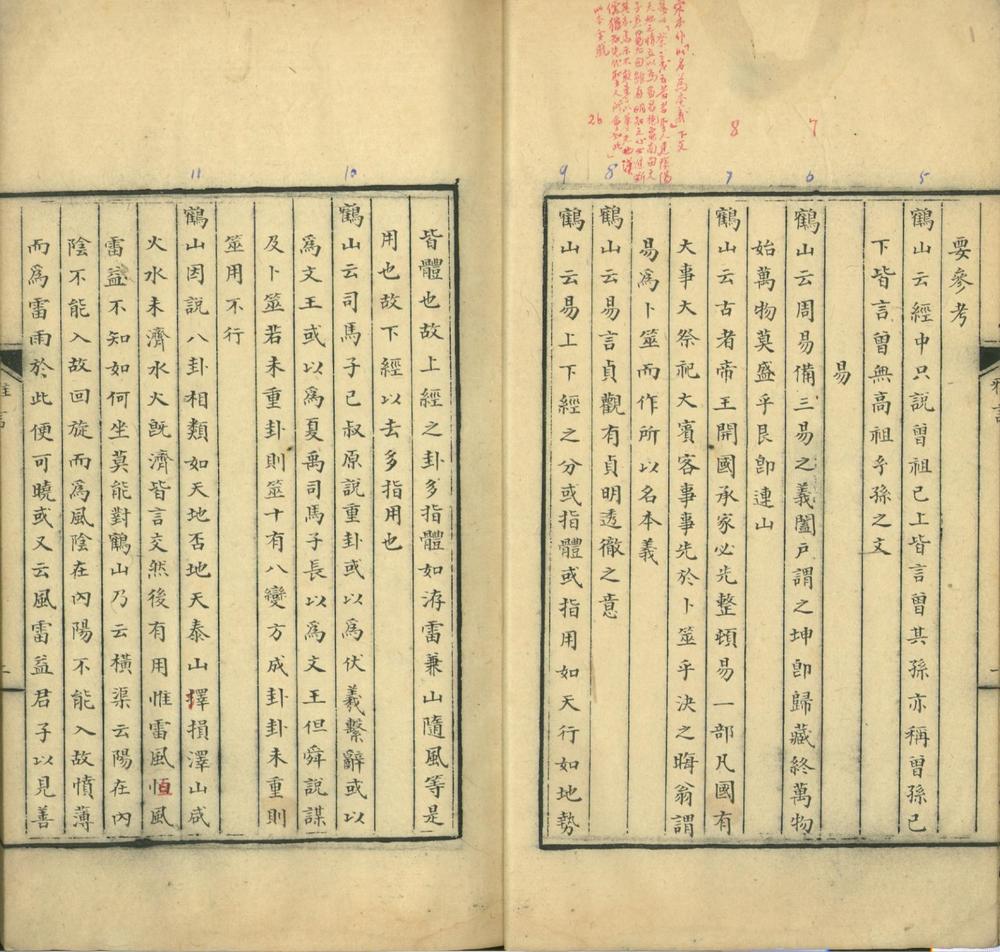 要參考
鶴山云經中只説曾祖已上皆言曾其孫亦稱曾孫已
下皆言曾無高祖𤣥孫之文
易
鶴山云周易備三易之義闔戶謂之坤卽歸藏終萬物
始萬物莫盛乎艮卽連山
鶴山云古者帝王開國承家必先整頓易一部凡國有
大事大祭祀大賓客事事先於卜筮乎決之晦翁謂
易爲卜筮而作所以名本義
鶴山云易言貞觀有貞明透徹之意
鶴山云易上下經之分或指體或指用如天行如地勢
皆體也故上經之卦多指體如洊雷兼山隨風等是
用也故下經以去多指用也
鶴山云司馬子已叔原說重卦或以爲伏羲繫辭或以
爲文王或以爲夏禹司馬子長以爲文王但舜說謀
及卜筮若未重卦則筮十有八變方成卦卦未重則
筮用不行
鶴山因說八卦相類如天地否地天泰山擇損澤山咸
火水未濟水火旣濟皆言交然後有用惟雷風恒風
雷益不知如何坐莫能對鶴山乃云橫渠云陽在內
陰不能入故回旋而爲風陰在內陽不能入故憤薄
而爲雷雨於此便可曉或又云風雷益君子以見善
5
6
7
8
9
10
11
7
8
26